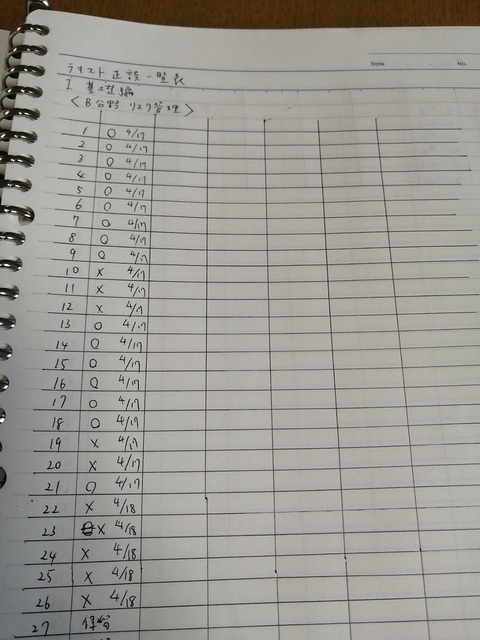 Date No.
テスト正誤一覧表
I 基礎編
<B分野 リスク管理>
1 ○ 4/17
2 ○ 4/17
3 ○ 4/17
4 ○ 4/17
5 ○ 4/17
6 ○ 4/17
7 ○ 4/17
8 ○ 4/17
9 ○ 4/17
10 × 4/17
11 × 4/17
12 × 4/17
13 ○ 4/17
14 ○ 4/17
15 ○ 4/17
16 ○ 4/17
17 ○ 4/17
18 ○ 4/17
19 × 4/17
20 × 4/17
21 ○ 4/17
22 × 4/18
23 × 4/18
24 × 4/18
25 × 4/18
26 × 4/18
27